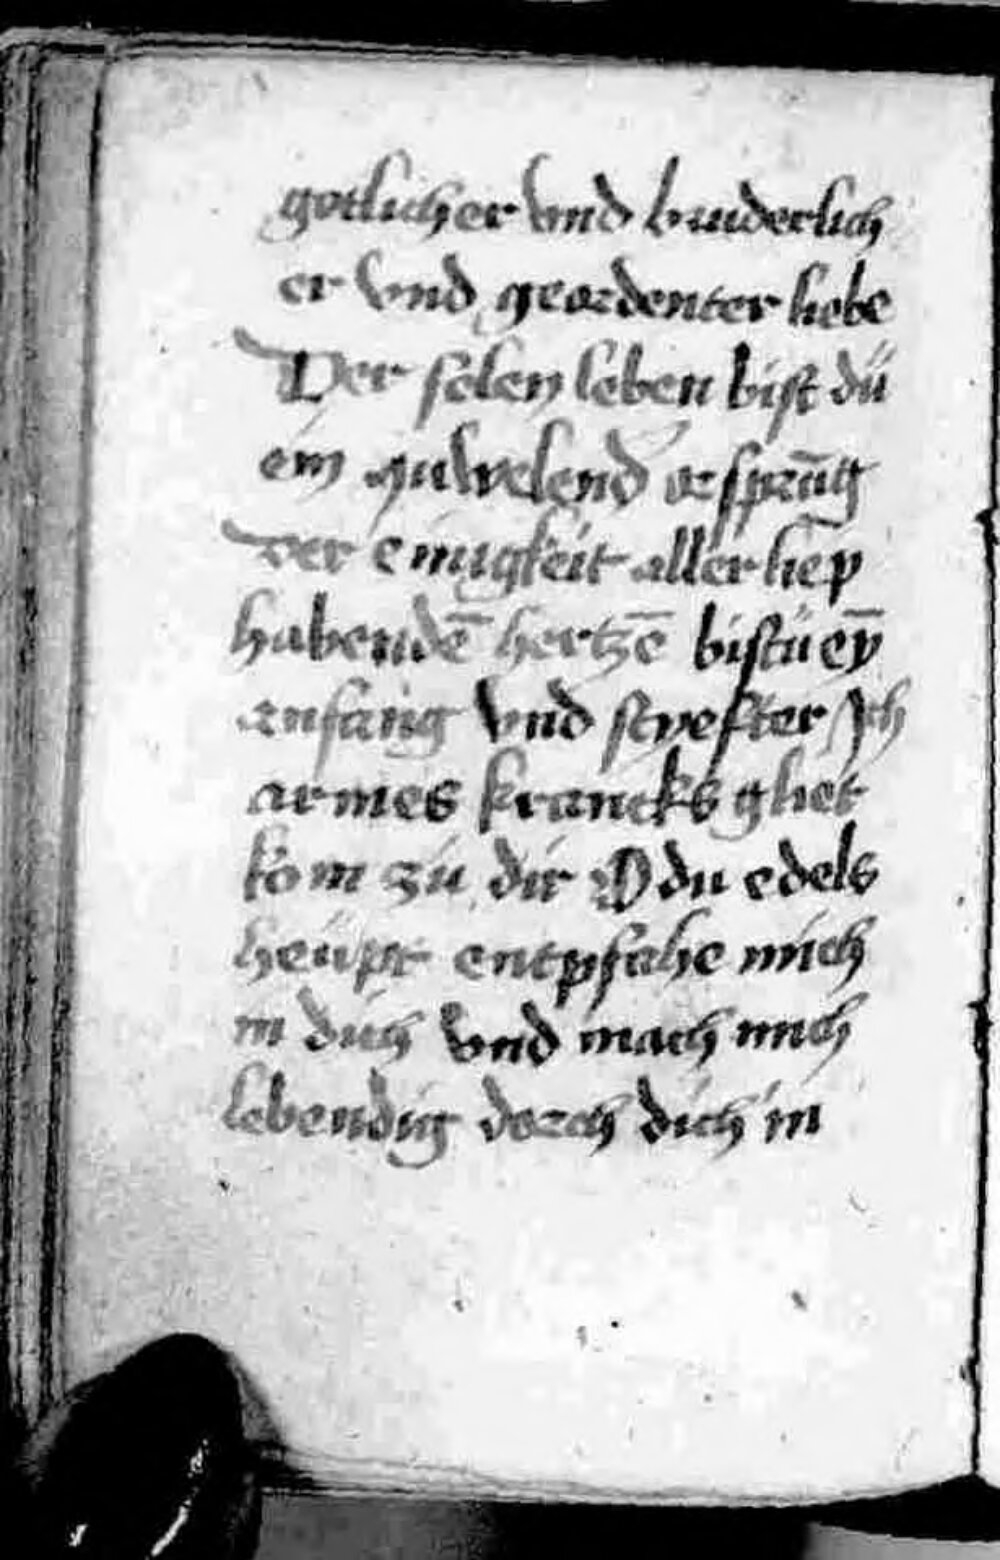 gotlicher vnd bruderlich
er vnd geordenter liebe
Der selen leben bist dü
ein quwelend orsprūg
Der einigkeit aller liep
habendē hertzē bistu eȳ
anfang vnd styefter Jch
armes krancks gliet
kom zü dir O du edels
heüpt entpfahe mich
in dich vnd mach mich
lebendig dorch dich in